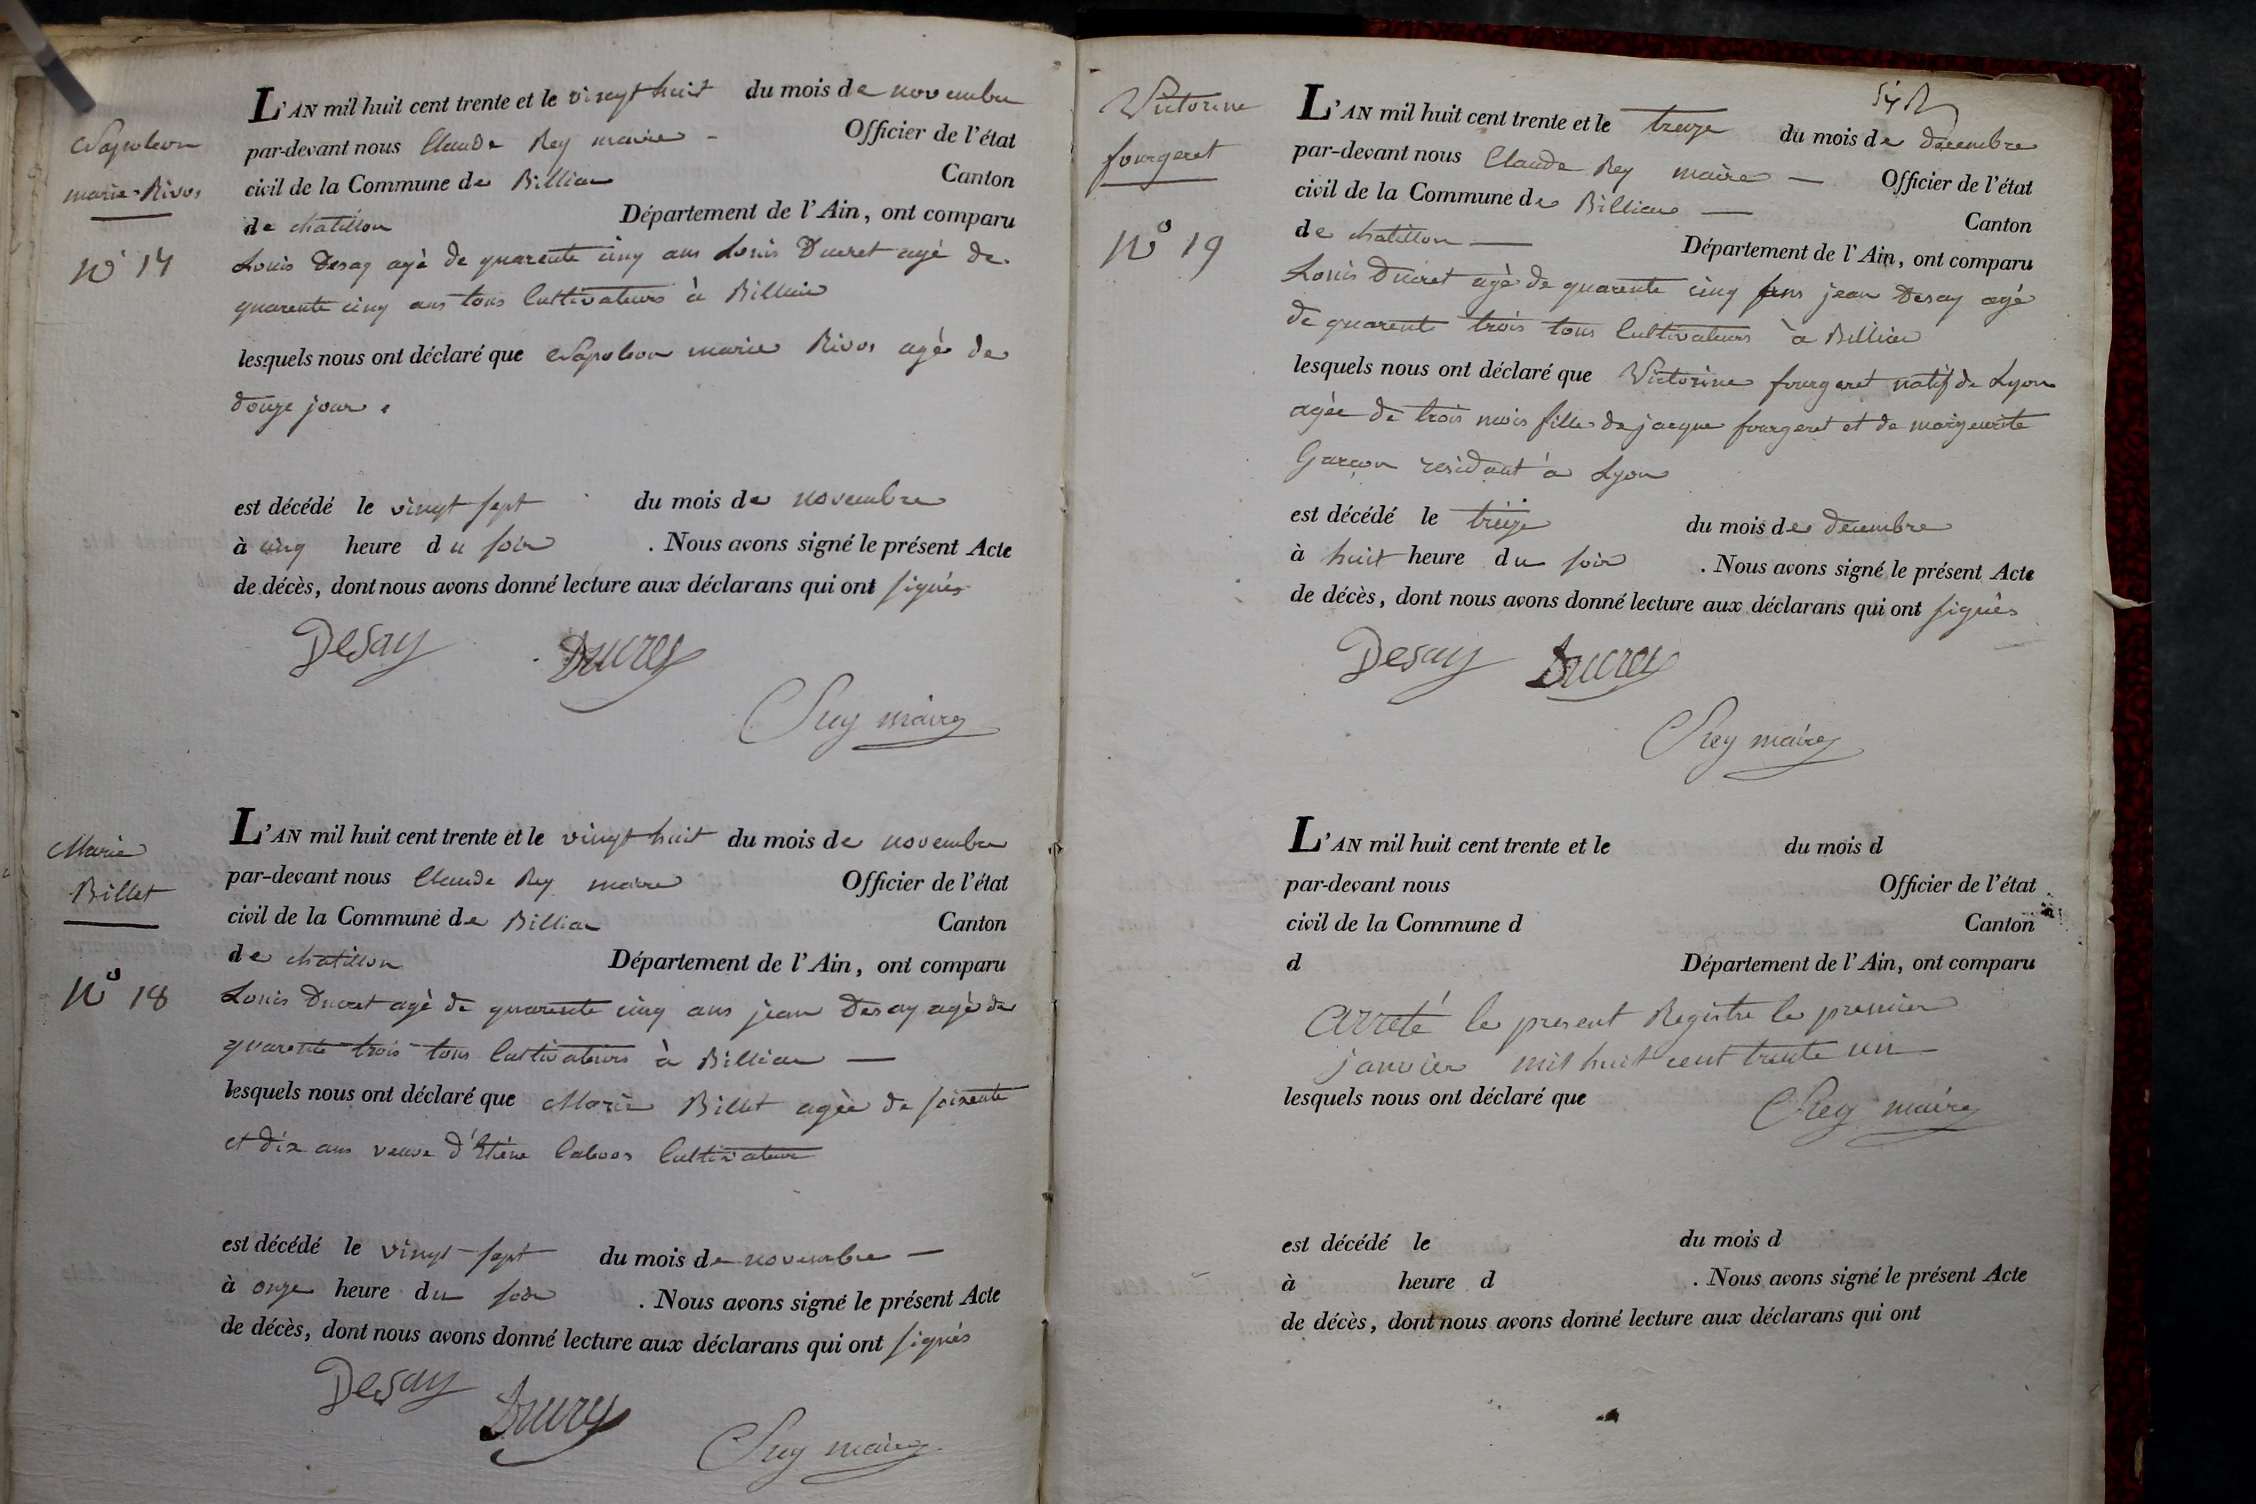 Napoleon
marie Rivos
N° 17
L'AN mil huit cent trente et le vingt huit du mois de novembre
par-devant nous Claude Rey maire - Officier de l'état
civil de la Commune de Billiau Canton
de chatillon Département de l'Ain, ont comparu
Louis Desay agé de quarente cinq ans Louis Ducret agé de
quarente cinq ans tous Cultivateurs à Billiau
lesquels nous ont déclaré que Napoleon marie Rivos agé de
douze jour
est décédé le vingt sept du mois de novembre
à cinq heure du soir . Nous avons signé le présent Acte
de décès, dont nous avons donné lecture aux déclarans qui ont signés
Desay Ducrey
C Rey maire
Marie
Billet
N° 18
L'AN mil huit cent trente et le vingt huit du mois de novembre
par-devant nous Claude Rey maire Officier de l'état
civil de la Commune de Billiau Canton
de chatillon Département de l'Ain, ont comparu
Louis Ducret agé de quarente cinq ans jean Desay agé de
quarente trois tous Cultivateurs à Billiau —
lesquels nous ont déclaré que Marie Billet agée de soixente
et dix ans veuve d'Etiene Cultivateur
est décédé le vingt sept du mois de novembre —
à onze heure du soir . Nous avons signé le présent Acte
de décès, dont nous avons donné lecture aux déclarans qui ont signés
Desay Ducrey
C Rey maire
Victorine
fourgeret
N° 19
L'AN mil huit cent trente et le treize du mois de decembre
par-devant nous Claude Rey maire — Officier de l'état
civil de la Commune de Billiau — Canton
de chatillon — Département de l'Ain, ont comparu
Louis Ducret agé de quarente cinq ans jean Desay agé
de quarente trois tous Cultivateurs à Billiau
lesquels nous ont déclaré que Victorine fourgeret natif de Lyon
agée de trois mois fille de jacque fourgeret et de marguerite
Garçon residant à Lyon
est décédé le treize du mois de decembre
à huit heure du soir . Nous avons signé le présent Acte
de décès, dont nous avons donné lecture aux déclarans qui ont signés
Desay Ducrey
C Rey maire
L'AN mil huit cent trente et le du mois d
par-devant nous Officier de l'état
civil de la Commune d Canton
d Département de l'Ain, ont comparu
Arreté le present Registre le premier
janvier mil huit cent trente un
lesquels nous ont déclaré que C Rey maire
est décédé le du mois d
à heure d . Nous avons signé le présent Acte
de décès, dont nous avons donné lecture aux déclarans qui ont